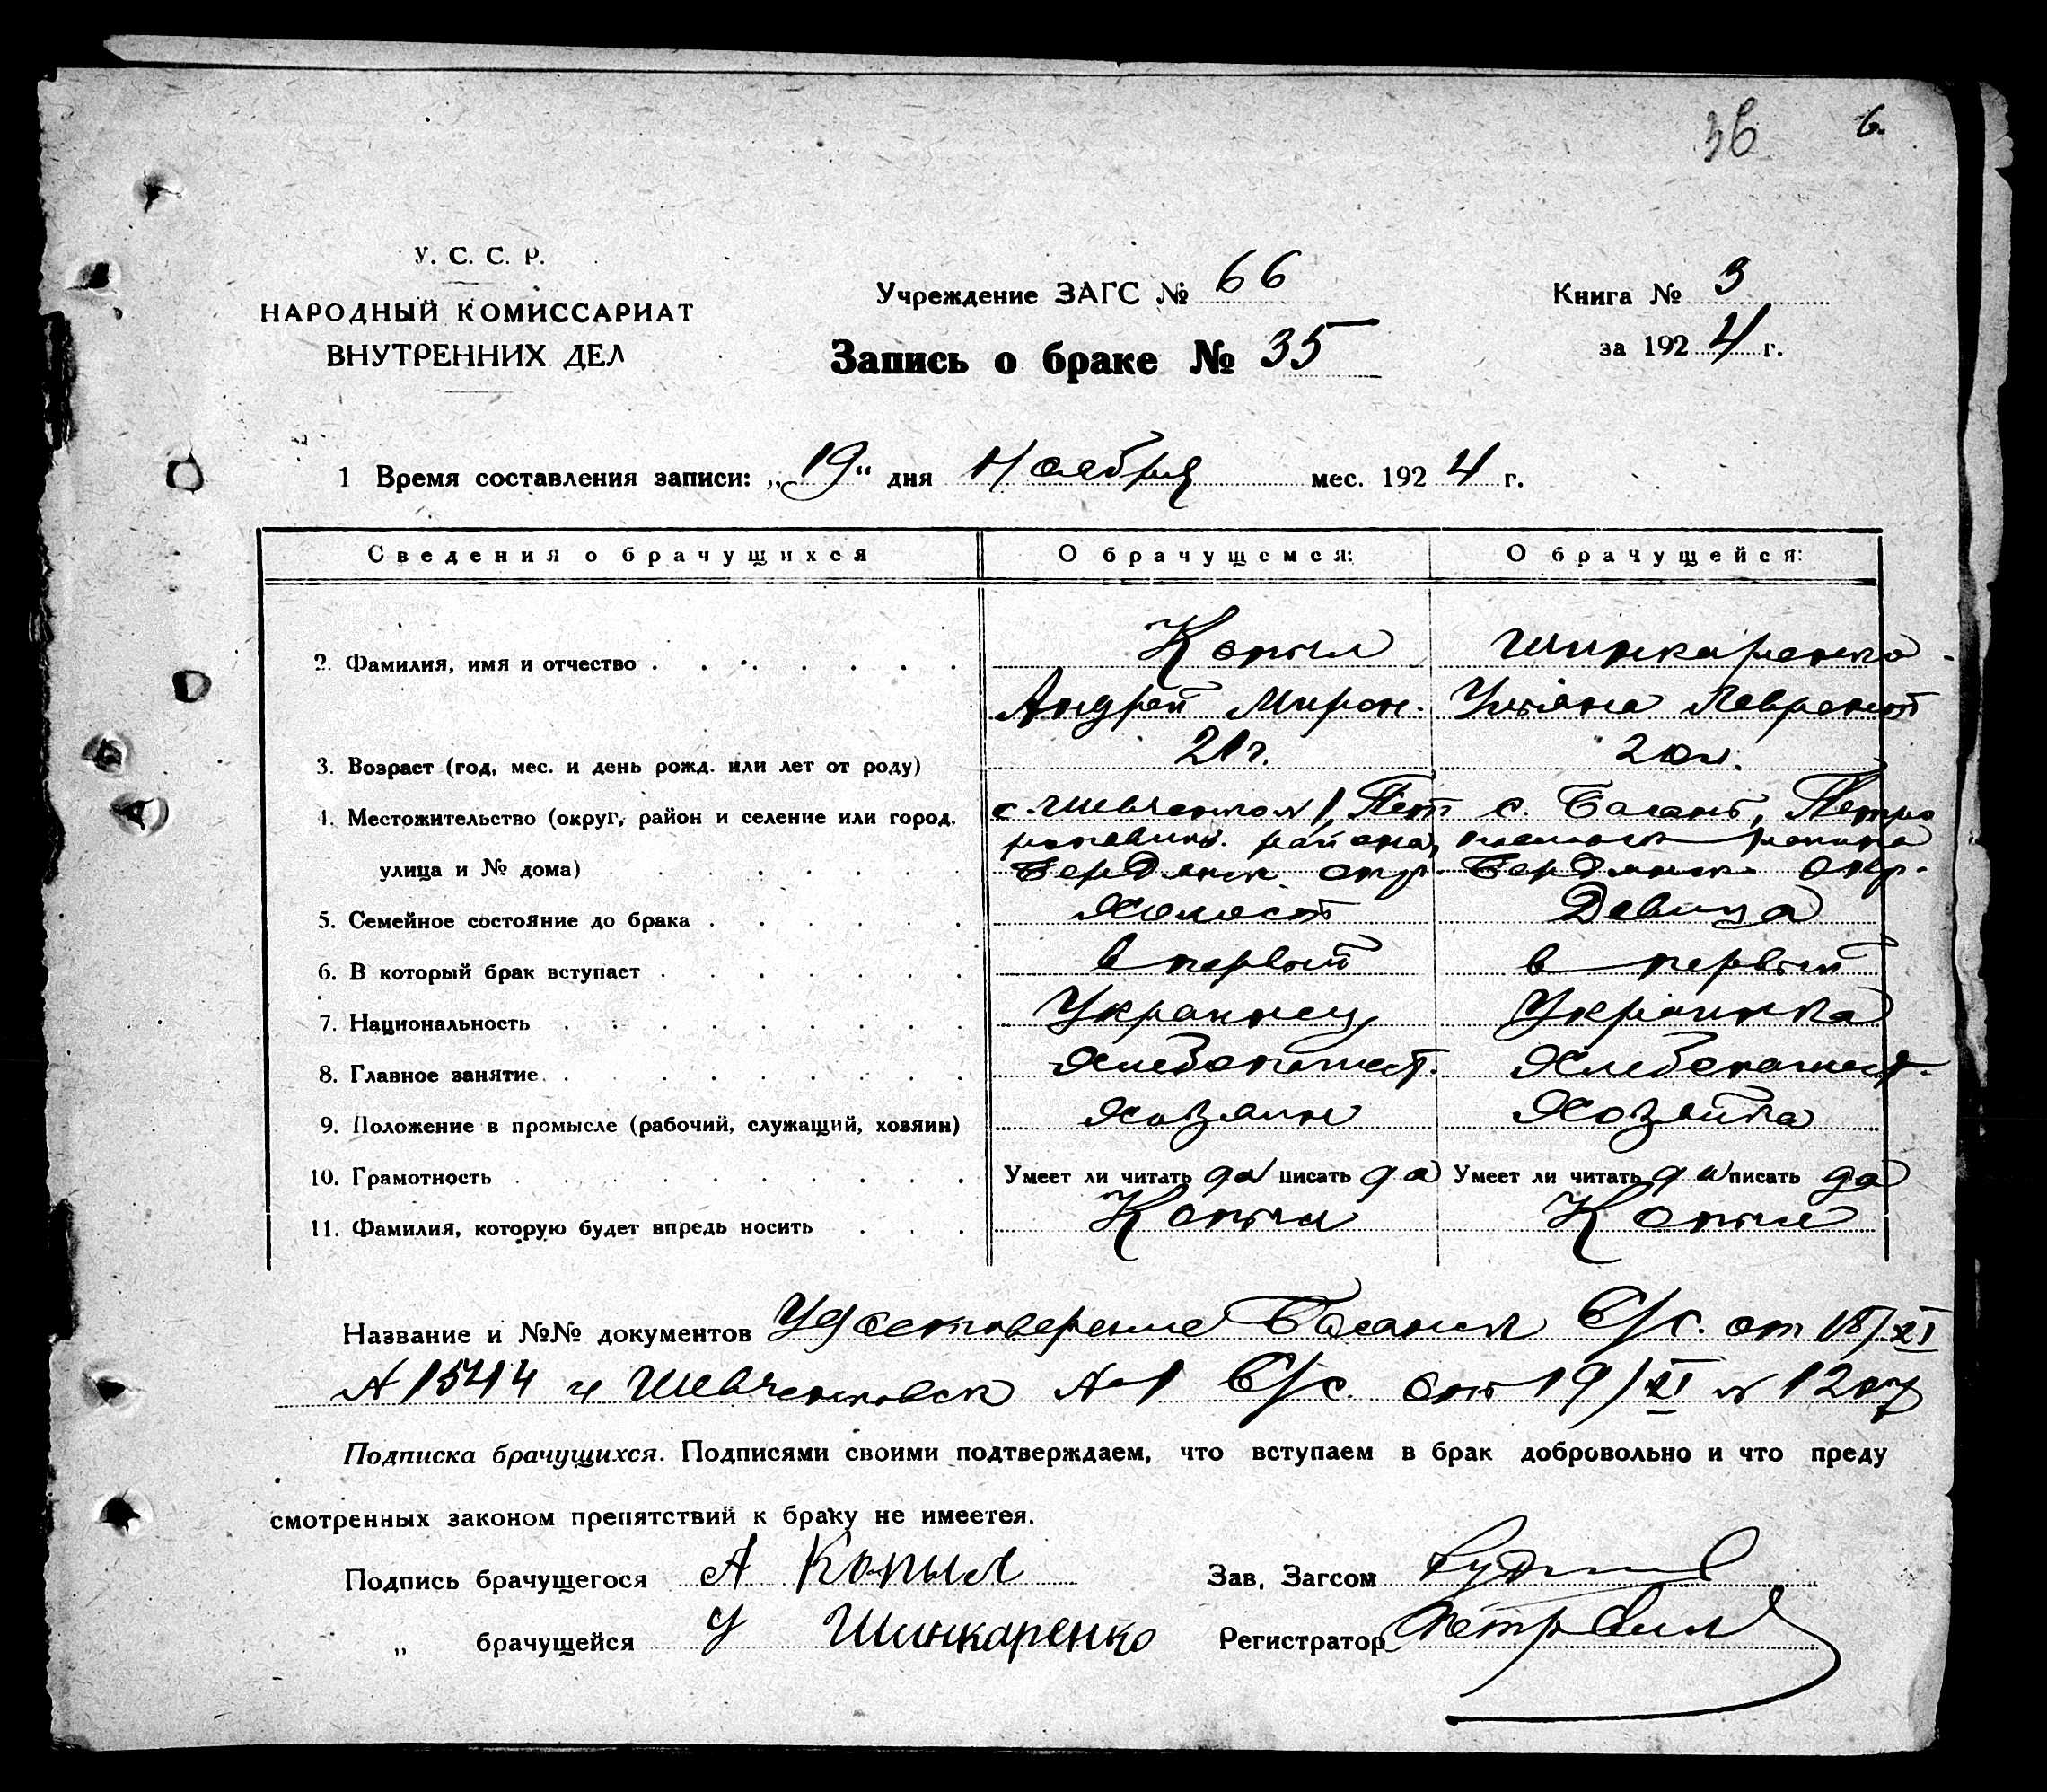 36 6.
У. С. С. Р.
НАРОДНЫЙ КОМИССАРИАТ
ВНУТРЕННИХ ДЕЛ
Учреждение ЗАГС № 66
Запись о браке № 35
Книга № 3
за 1924 г.
1 Время составления записи: „19“ дня Ноября мес. 1924 г.
Сведения о брачущихся О брачущемся: О брачущейся:
2. Фамилия, имя и отчество Копыл Шинкаренко
Андрей Мирон. Ульяна Лаврент
3. Возраст (год, мес. и день рожд. или лет от роду) 21 г. 20 л.
4. Местожительство (округ, район и селение или город, с. Шевченком 1, Пет с. Басань, Петро
района, района
улица и № дома) Бердянск. окр. Бердянск. окр.
5. Семейное состояние до брака Холост Девица
6. В который брак вступает в первый в первый
7. Национальность Украинец Украинка
8. Главное занятие. Хлебопашест. Хлебопашест.
9. Положение в промысле (рабочий, служащий, хозяин) Хозяин Хозяйка
10. Грамотность Умеет ли читать да писать да Умеет ли читать да писать да
11. Фамилия, которую будет впредь носить Копыл Копыл
Название и №№ документов Удостоверение Басанск С/С. от 18/XI
№ 1544 и Шевченковск № 1 С/С. от 19/XI № 1207
Подписка брачущихся. Подписями своими подтверждаем, что вступаем в брак добровольно и что преду
смотренных законом препятствий к браку не имеется.
Подпись брачущегося А Копыл Зав. Загсом
„ брачущейся У Шинкаренко Регистратор